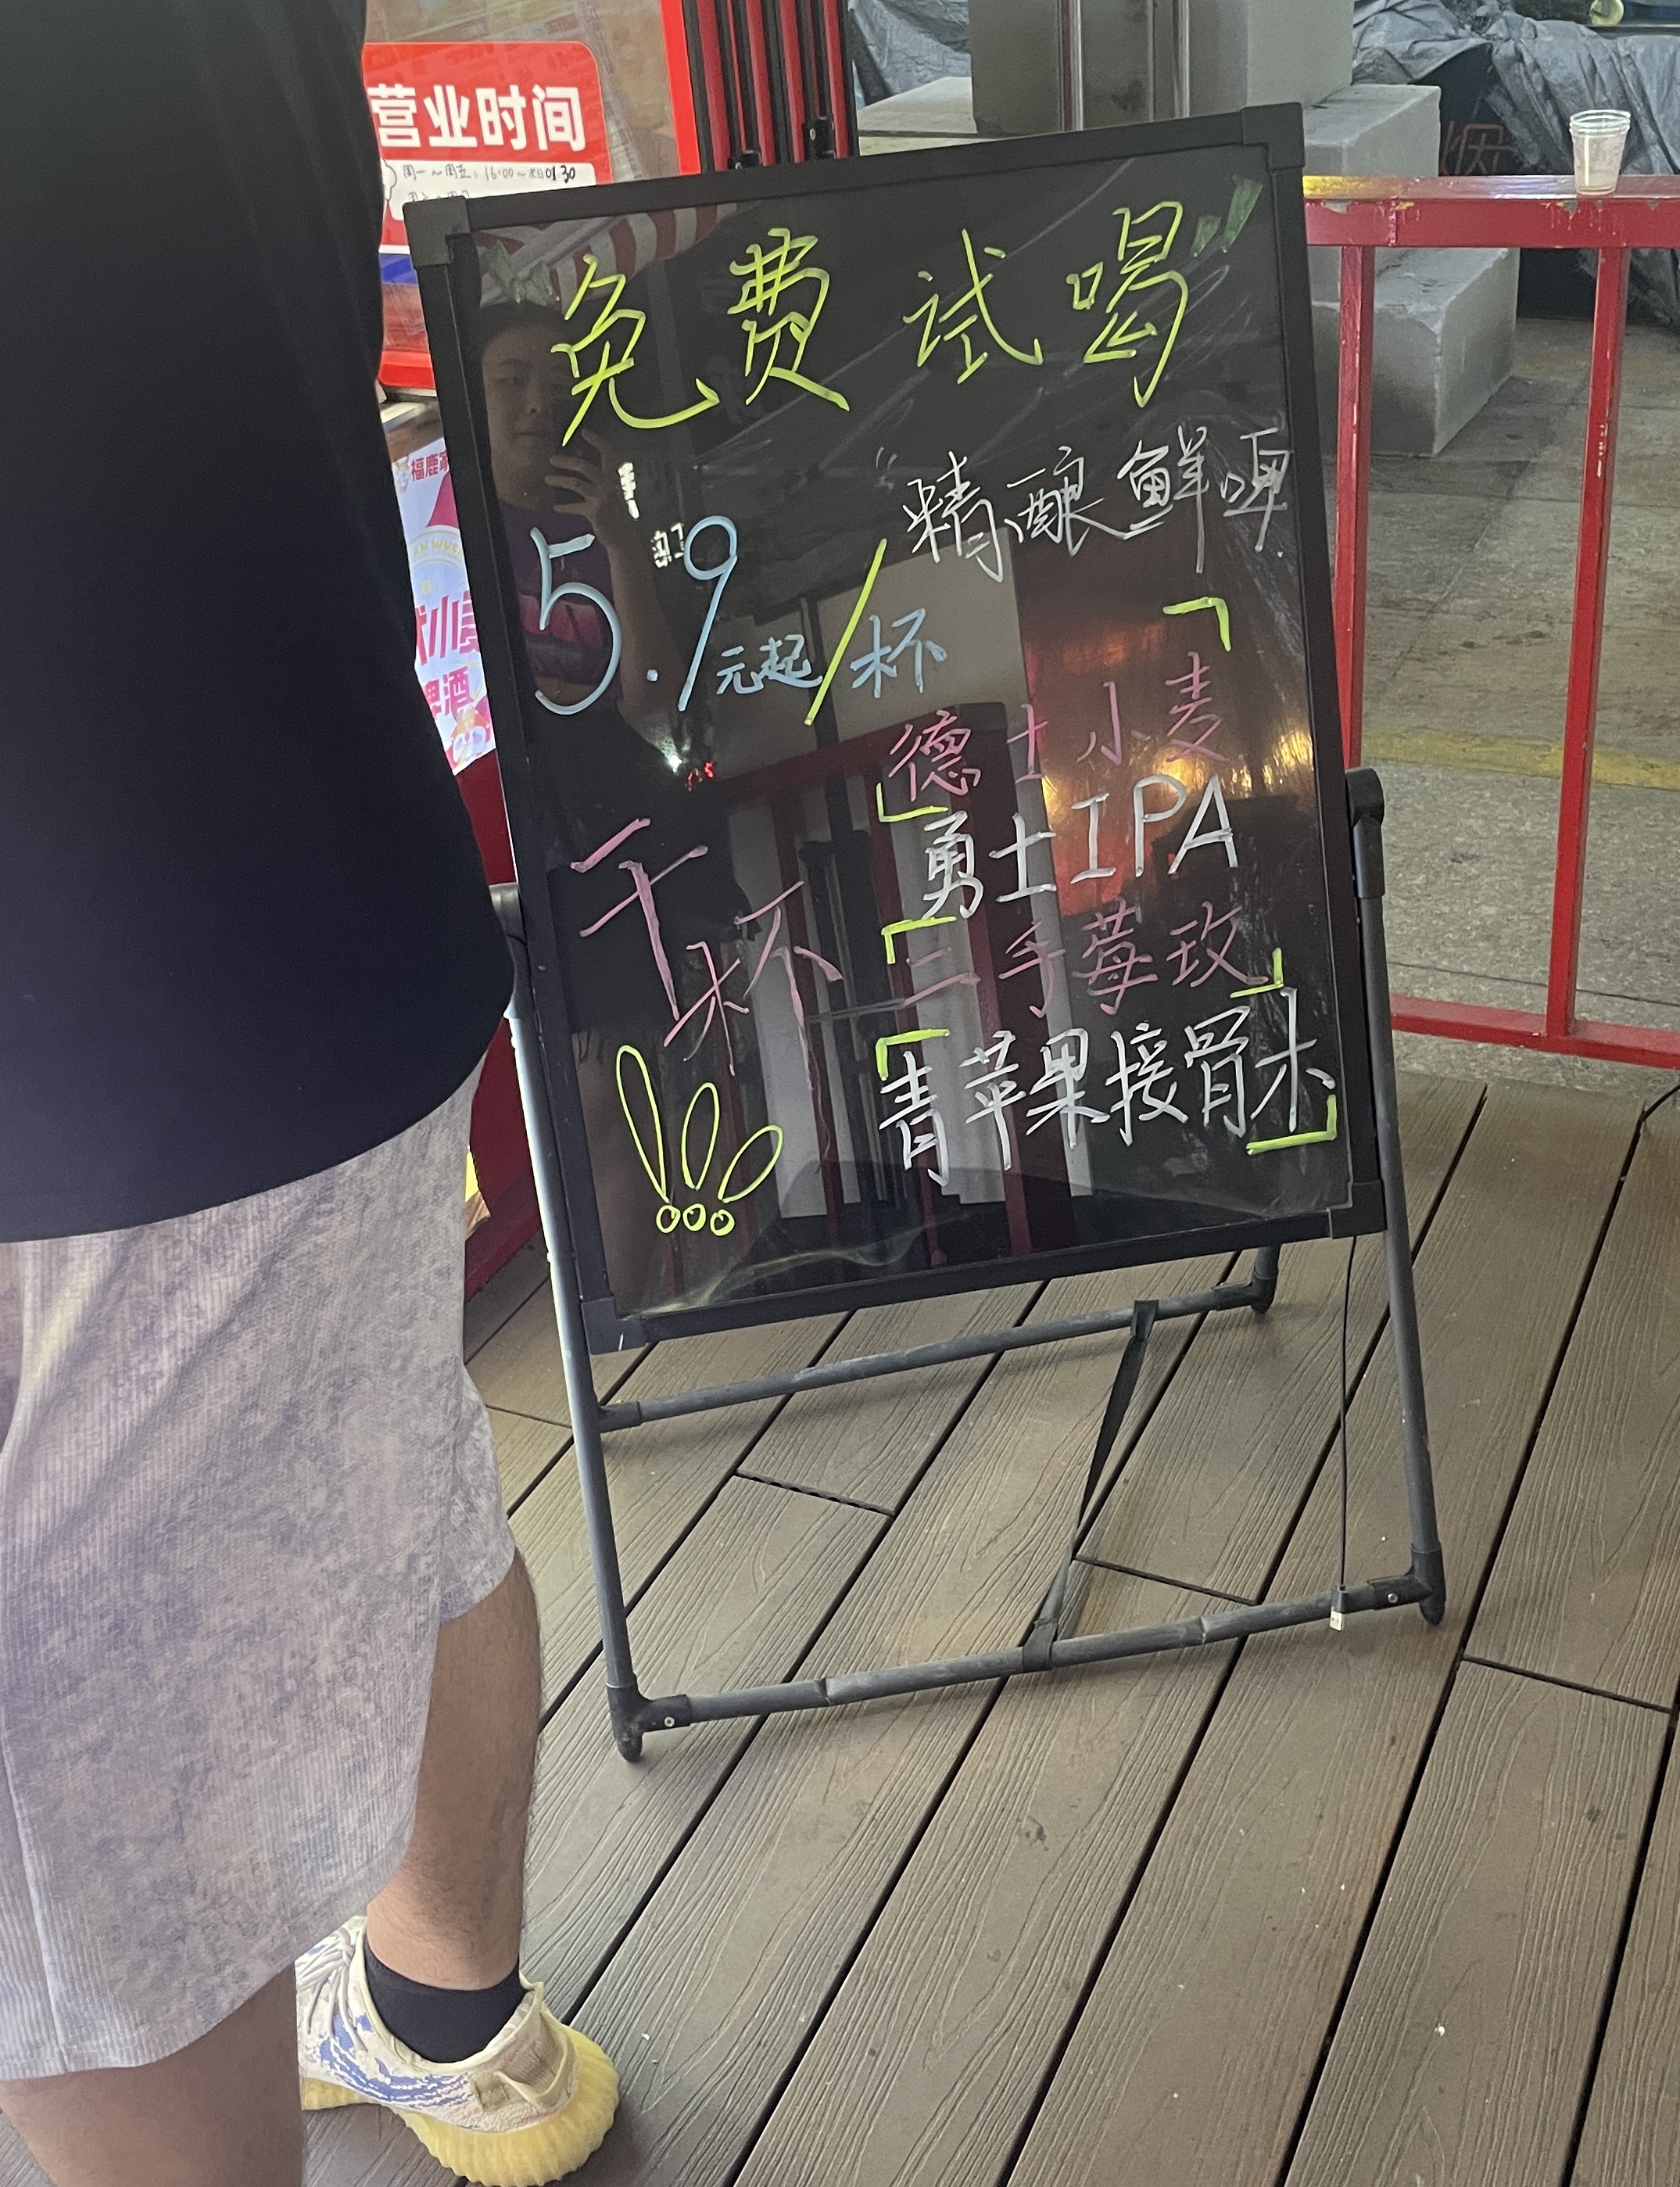 营业时间
周一~周五：16:00~次日01:30
免费试喝
"精酿鲜啤
5.9元起/杯
德士小麦
勇士IPA
二手莓玫
青苹果接骨木
干杯
福鹿家
小麦
啤酒